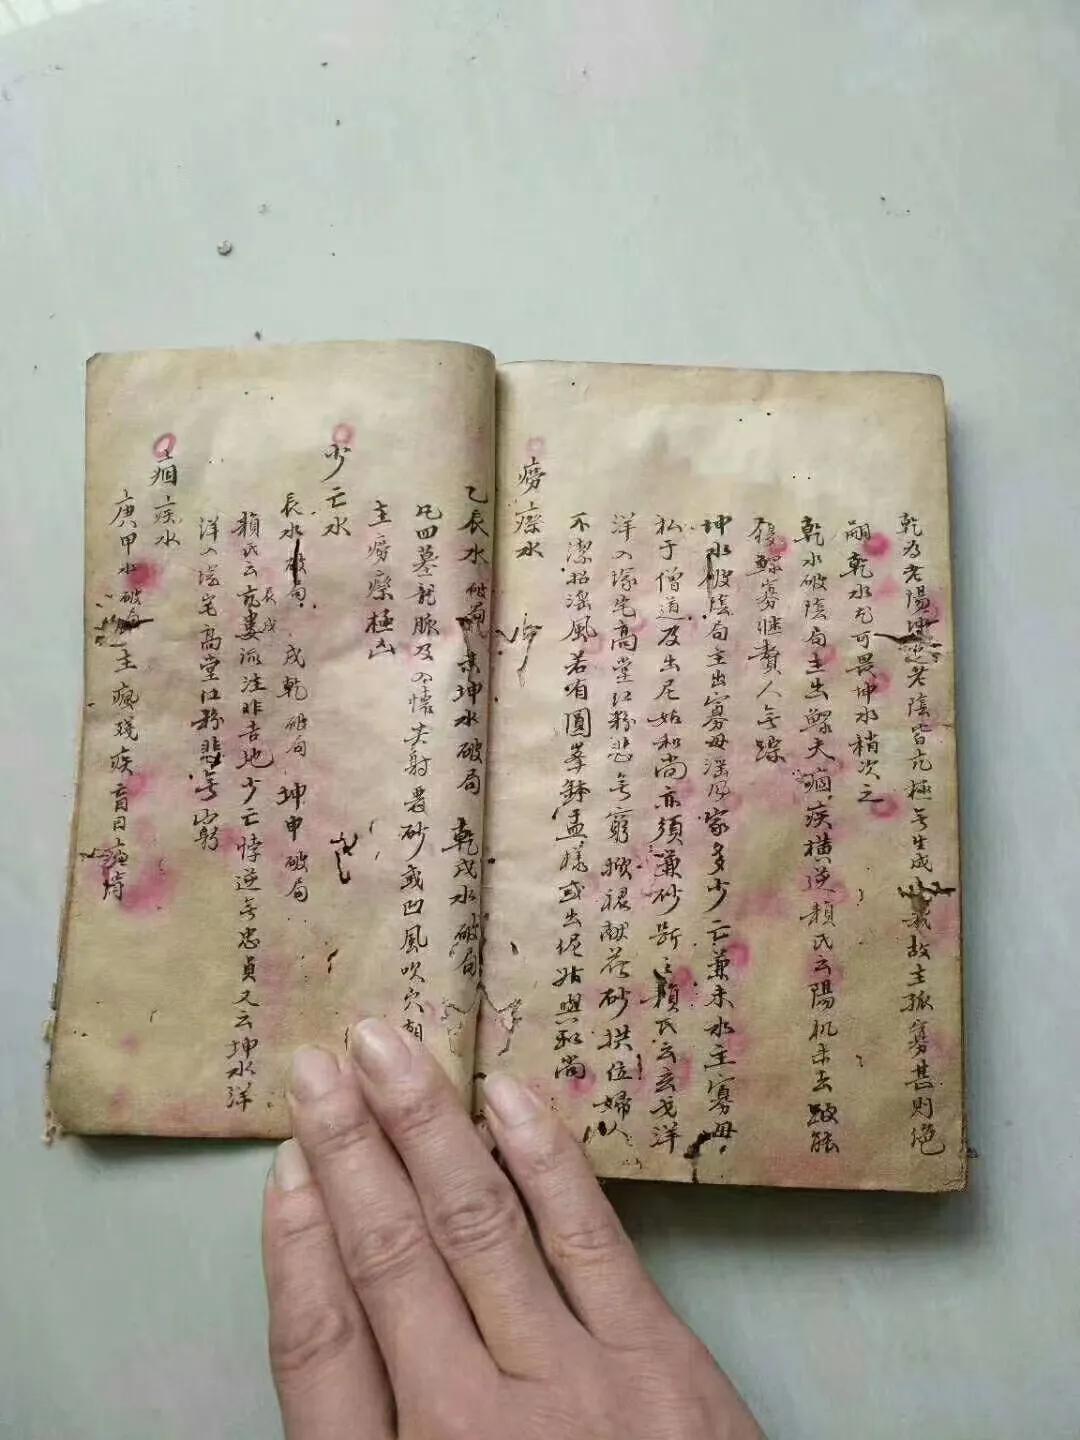 乾為老陽坤是老陰皆亢極無生成 裁故主孤寡甚則絕
嗣乾水尤可畏坤水稍次之
乾水破陰局主出鰥夫痼疾橫逆賴氏云陽机未去跛能
履鰥寡継賚人無踪
坤水破陰局主出寡母淫風家多少亡兼未水主寡母
私于僧道及出尼姑和尚亦須兼砂斷之賴氏云玄戈洋
洋入塚宅高堂红粉悲無窮掀裙献花砂拱位婦人
不潔招淫風若有圓峯鉢盂樣或出尼姑與和尚
癆瘵水
乙辰水破局 未坤水破局 乾戌水破局
凡四墓龍脉及入懷夹射者砂或凹風吹穴
主癆瘵極凶
少亡水
辰水破局 戌乾破局 坤申破局
賴氏云亢娄辰戌派注非吉地少亡悖逆無忠貞又云坤水洋
洋入塚宅高堂红粉悲無窮
痼疾水
庚甲水破局 主瘋殘疾盲目